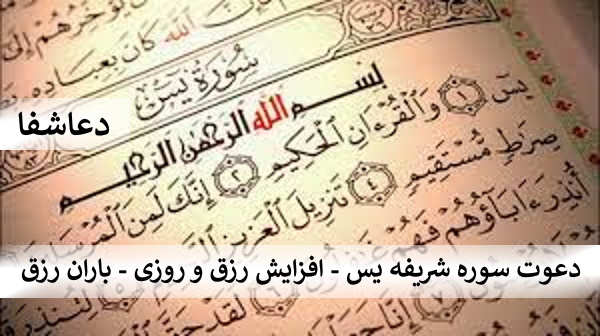 كَانَ بِعِبَادِهِ
سُورَةُ يس
دعاشفا
بِسْمِ اللَّهِ الرَّحْمَٰنِ الرَّحِيمِ
يسٓ ۝١ وَالْقُرْءَانِ الْحَكِيمِ ۝٢ إِنَّكَ لَمِنَ
صِرَٰطٍ مُّسْتَقِيمٍ ۝٤ تَنزِيلَ الْعَزِيزِ
أُنذِرَ ءَابَآؤُهُمْ فَهُمْ
دعوت سوره شریفه یس - افزایش رزق و روزی - باران رزق